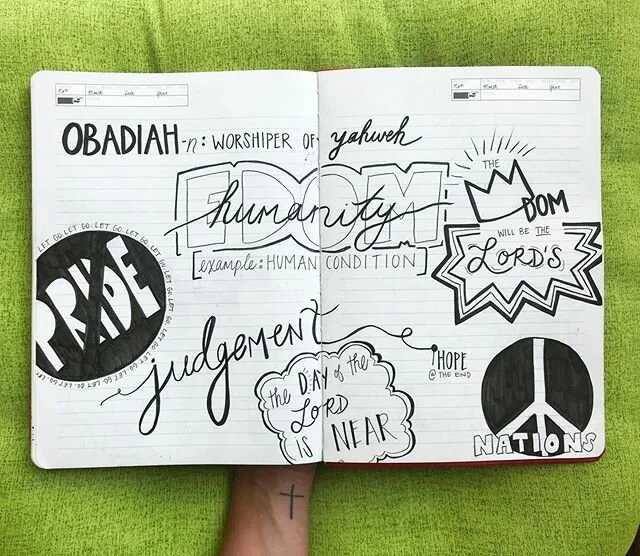 Month Date Year
Month Date Year
OBADIAH-n: WORSHIPER OF yahweh
EDOM
humanity
[example: HUMAN CONDITION]
THE
DOM
WILL BE THE
LORD'S
LET GO. LET GO. LET GO. LET GO. LET GO. LET GO. LET GO. LET GO. LET GO. LET GO. LET GO.
PRIDE
judgement
HOPE
@ THE END
the DAY of the
LORD
IS NEAR
NATIONS